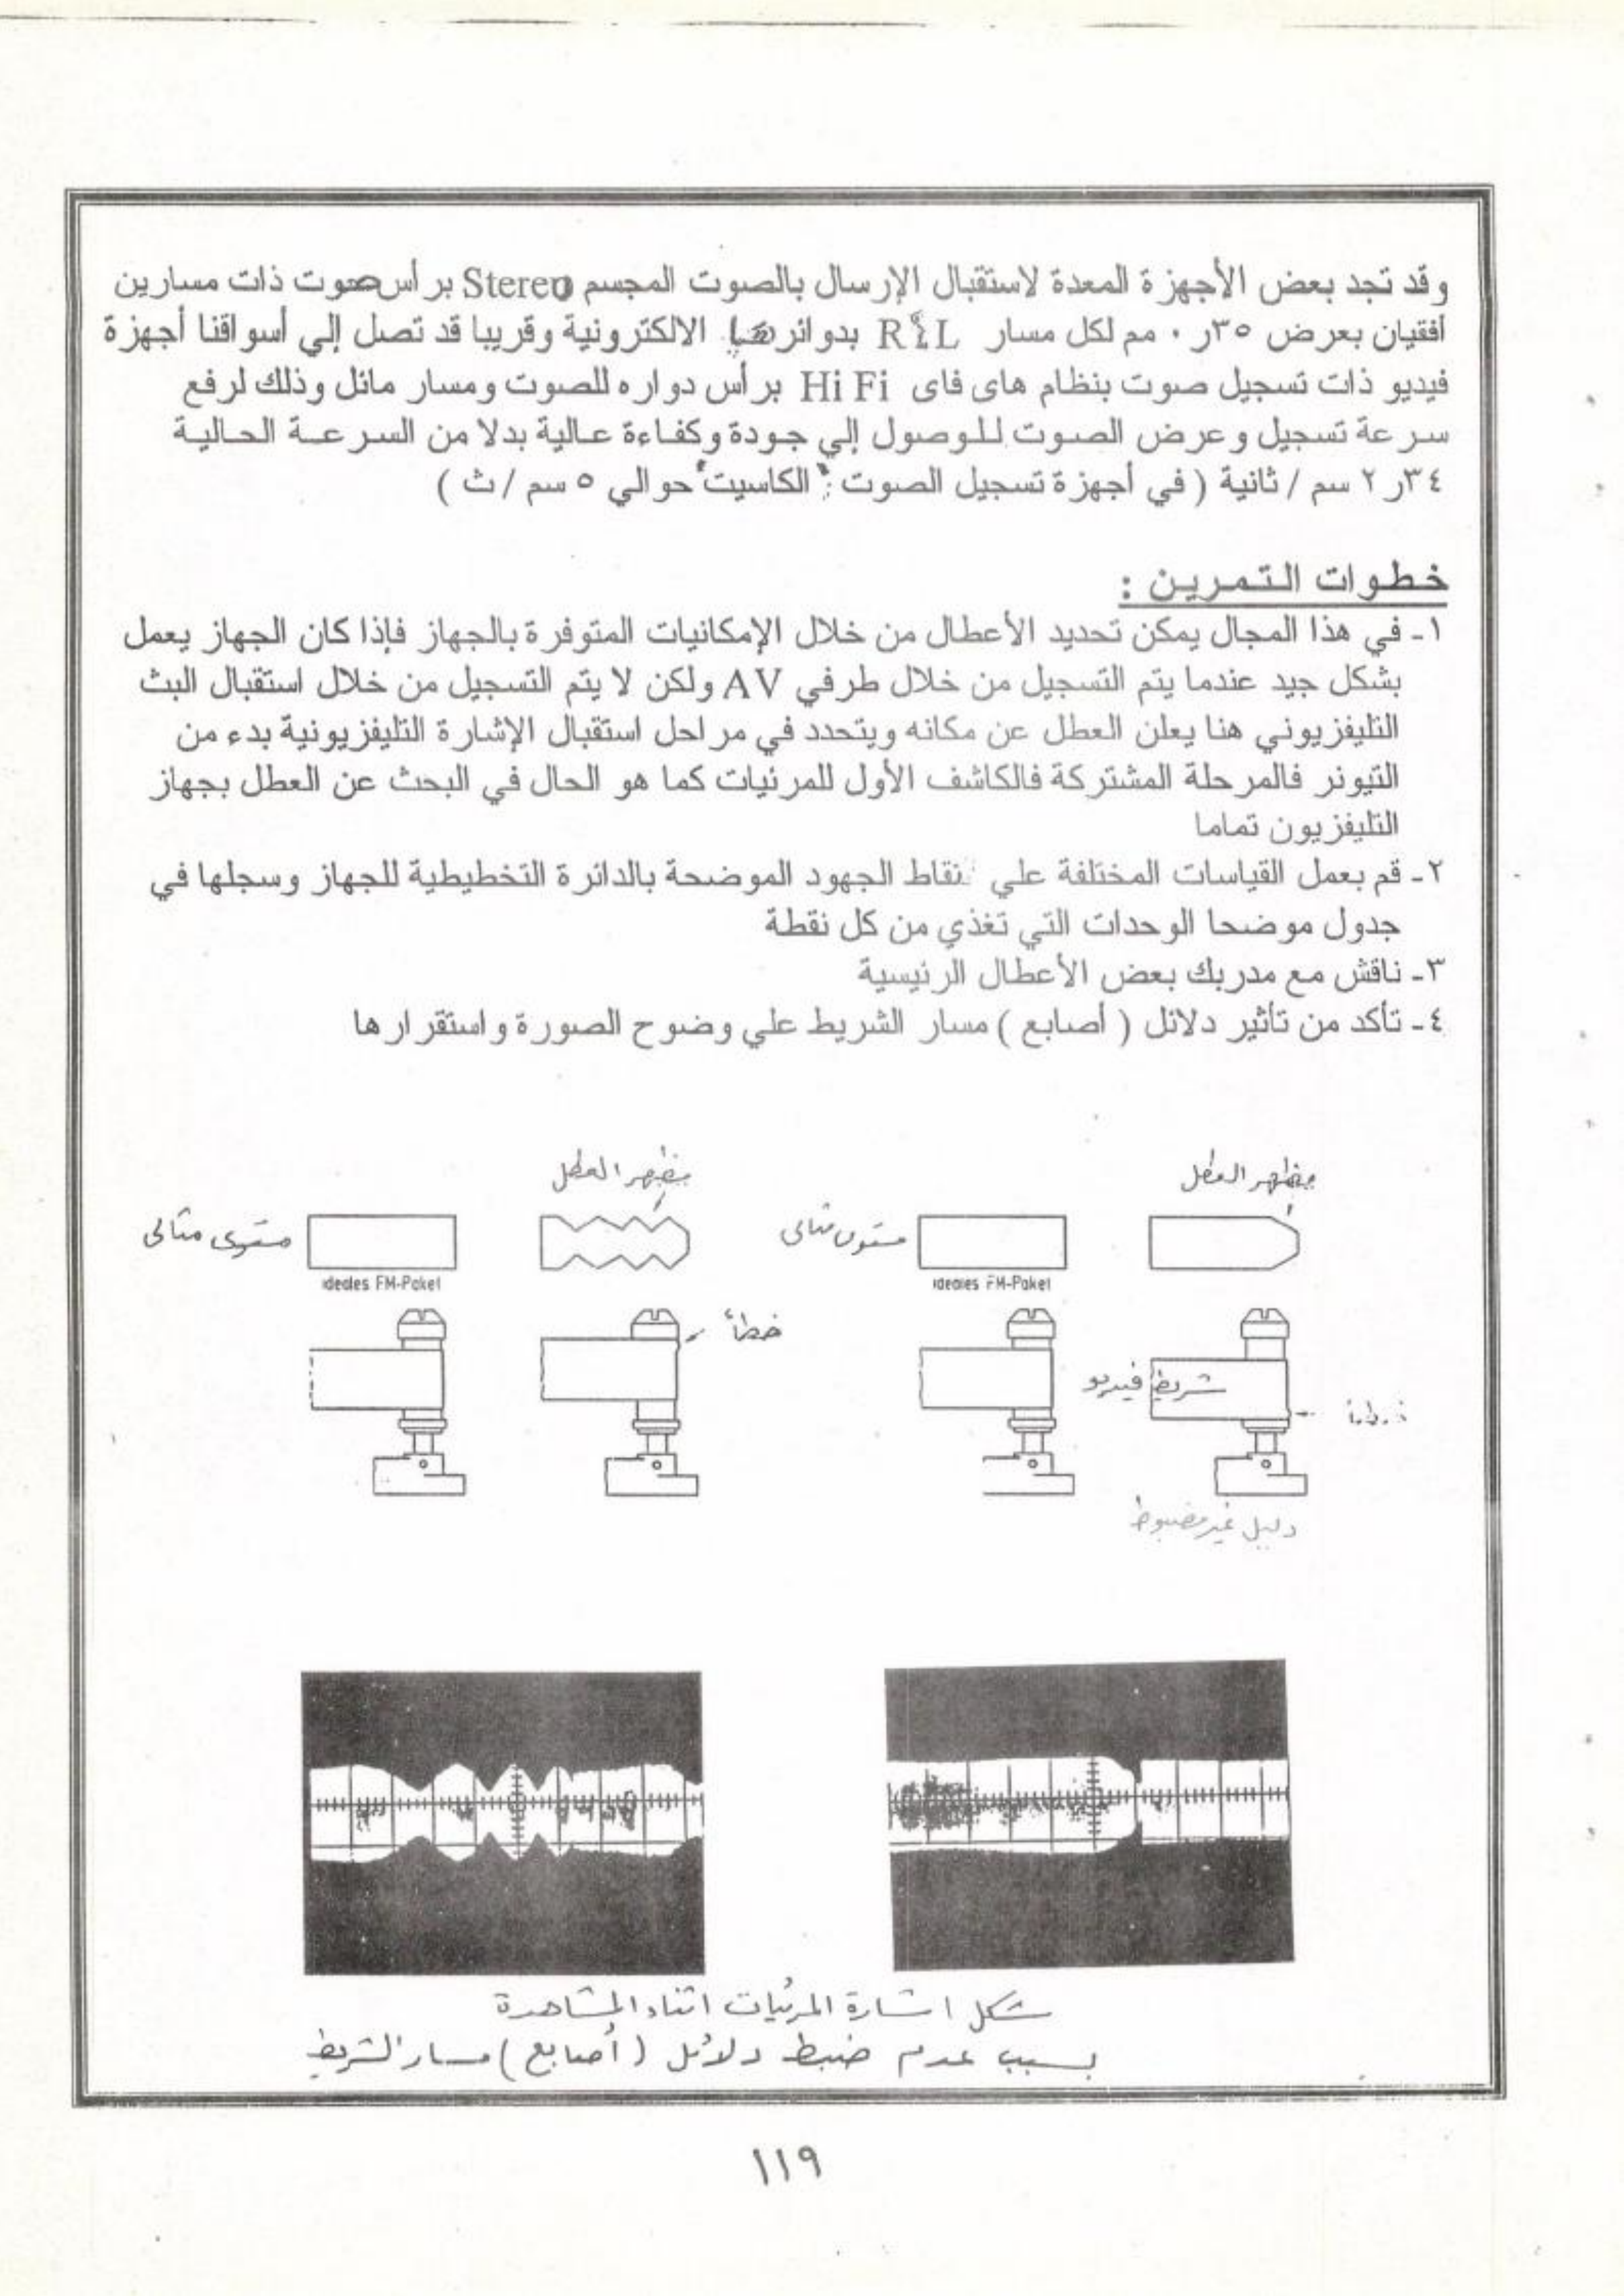 وقد تجد بعض الأجهزة المعدة لاستقبال الإرسال بالصوت المجسم Stereo برأس صوت ذات مسارين
أفقيان بعرض ٣٥ر٠ مم لكل مسار R،L بدوائرها الالكترونية وقريبا قد تصل إلي أسواقنا أجهزة
فيديو ذات تسجيل صوت بنظام هاى فاى Hi Fi برأس دواره للصوت ومسار مائل وذلك لرفع
سرعة تسجيل وعرض الصوت للوصول إلي جودة وكفاءة عالية بدلا من السرعة الحالية
٣٤ر٢ سم / ثانية ( في أجهزة تسجيل الصوت "الكاسيت" حوالي ٥ سم / ث )
خطوات التمرين :
١- في هذا المجال يمكن تحديد الأعطال من خلال الإمكانيات المتوفرة بالجهاز فإذا كان الجهاز يعمل
بشكل جيد عندما يتم التسجيل من خلال طرفي AV ولكن لا يتم التسجيل من خلال استقبال البث
التليفزيوني هنا يعلن العطل عن مكانه ويتحدد في مراحل استقبال الإشارة التليفزيونية بدء من
التيونر فالمرحلة المشتركة فالكاشف الأول للمرئيات كما هو الحال في البحث عن العطل بجهاز
التليفزيون تماما
٢- قم بعمل القياسات المختلفة علي نقاط الجهود الموضحة بالدائرة التخطيطية للجهاز وسجلها في
جدول موضحا الوحدات التي تغذي من كل نقطة
٣- ناقش مع مدربك بعض الأعطال الرئيسية
٤- تأكد من تأثير دلائل ( أصابع ) مسار الشريط علي وضوح الصورة واستقرارها
مظهر العطل
مستوى مثالى
ideales FM-Paket
شريط فيديو
خطأ
دليل غير مضبوط
مظهر العطل
مستوى مثالى
ideales FM-Paket
خطأ
شكل اشارة المرئيات اثناء المشاهدة
بسبب عدم ضبط دلائل (أصابع) مسار الشريط
١١٩